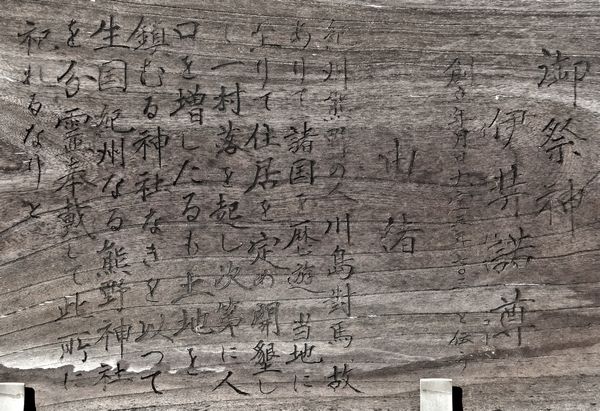 御祭神
伊弉諾尊
創立年月日
と伝う
由緒
紀州熊野の人川島對馬故
ありて諸国を歴遊当地に
なりて住居を定め開墾し
一村落を起し次第に人
口を増したるも土地を
鎮むる神社なきを以つて
生国紀州なる熊野神社
を分霊奉戴して此所に
祀れるなりと